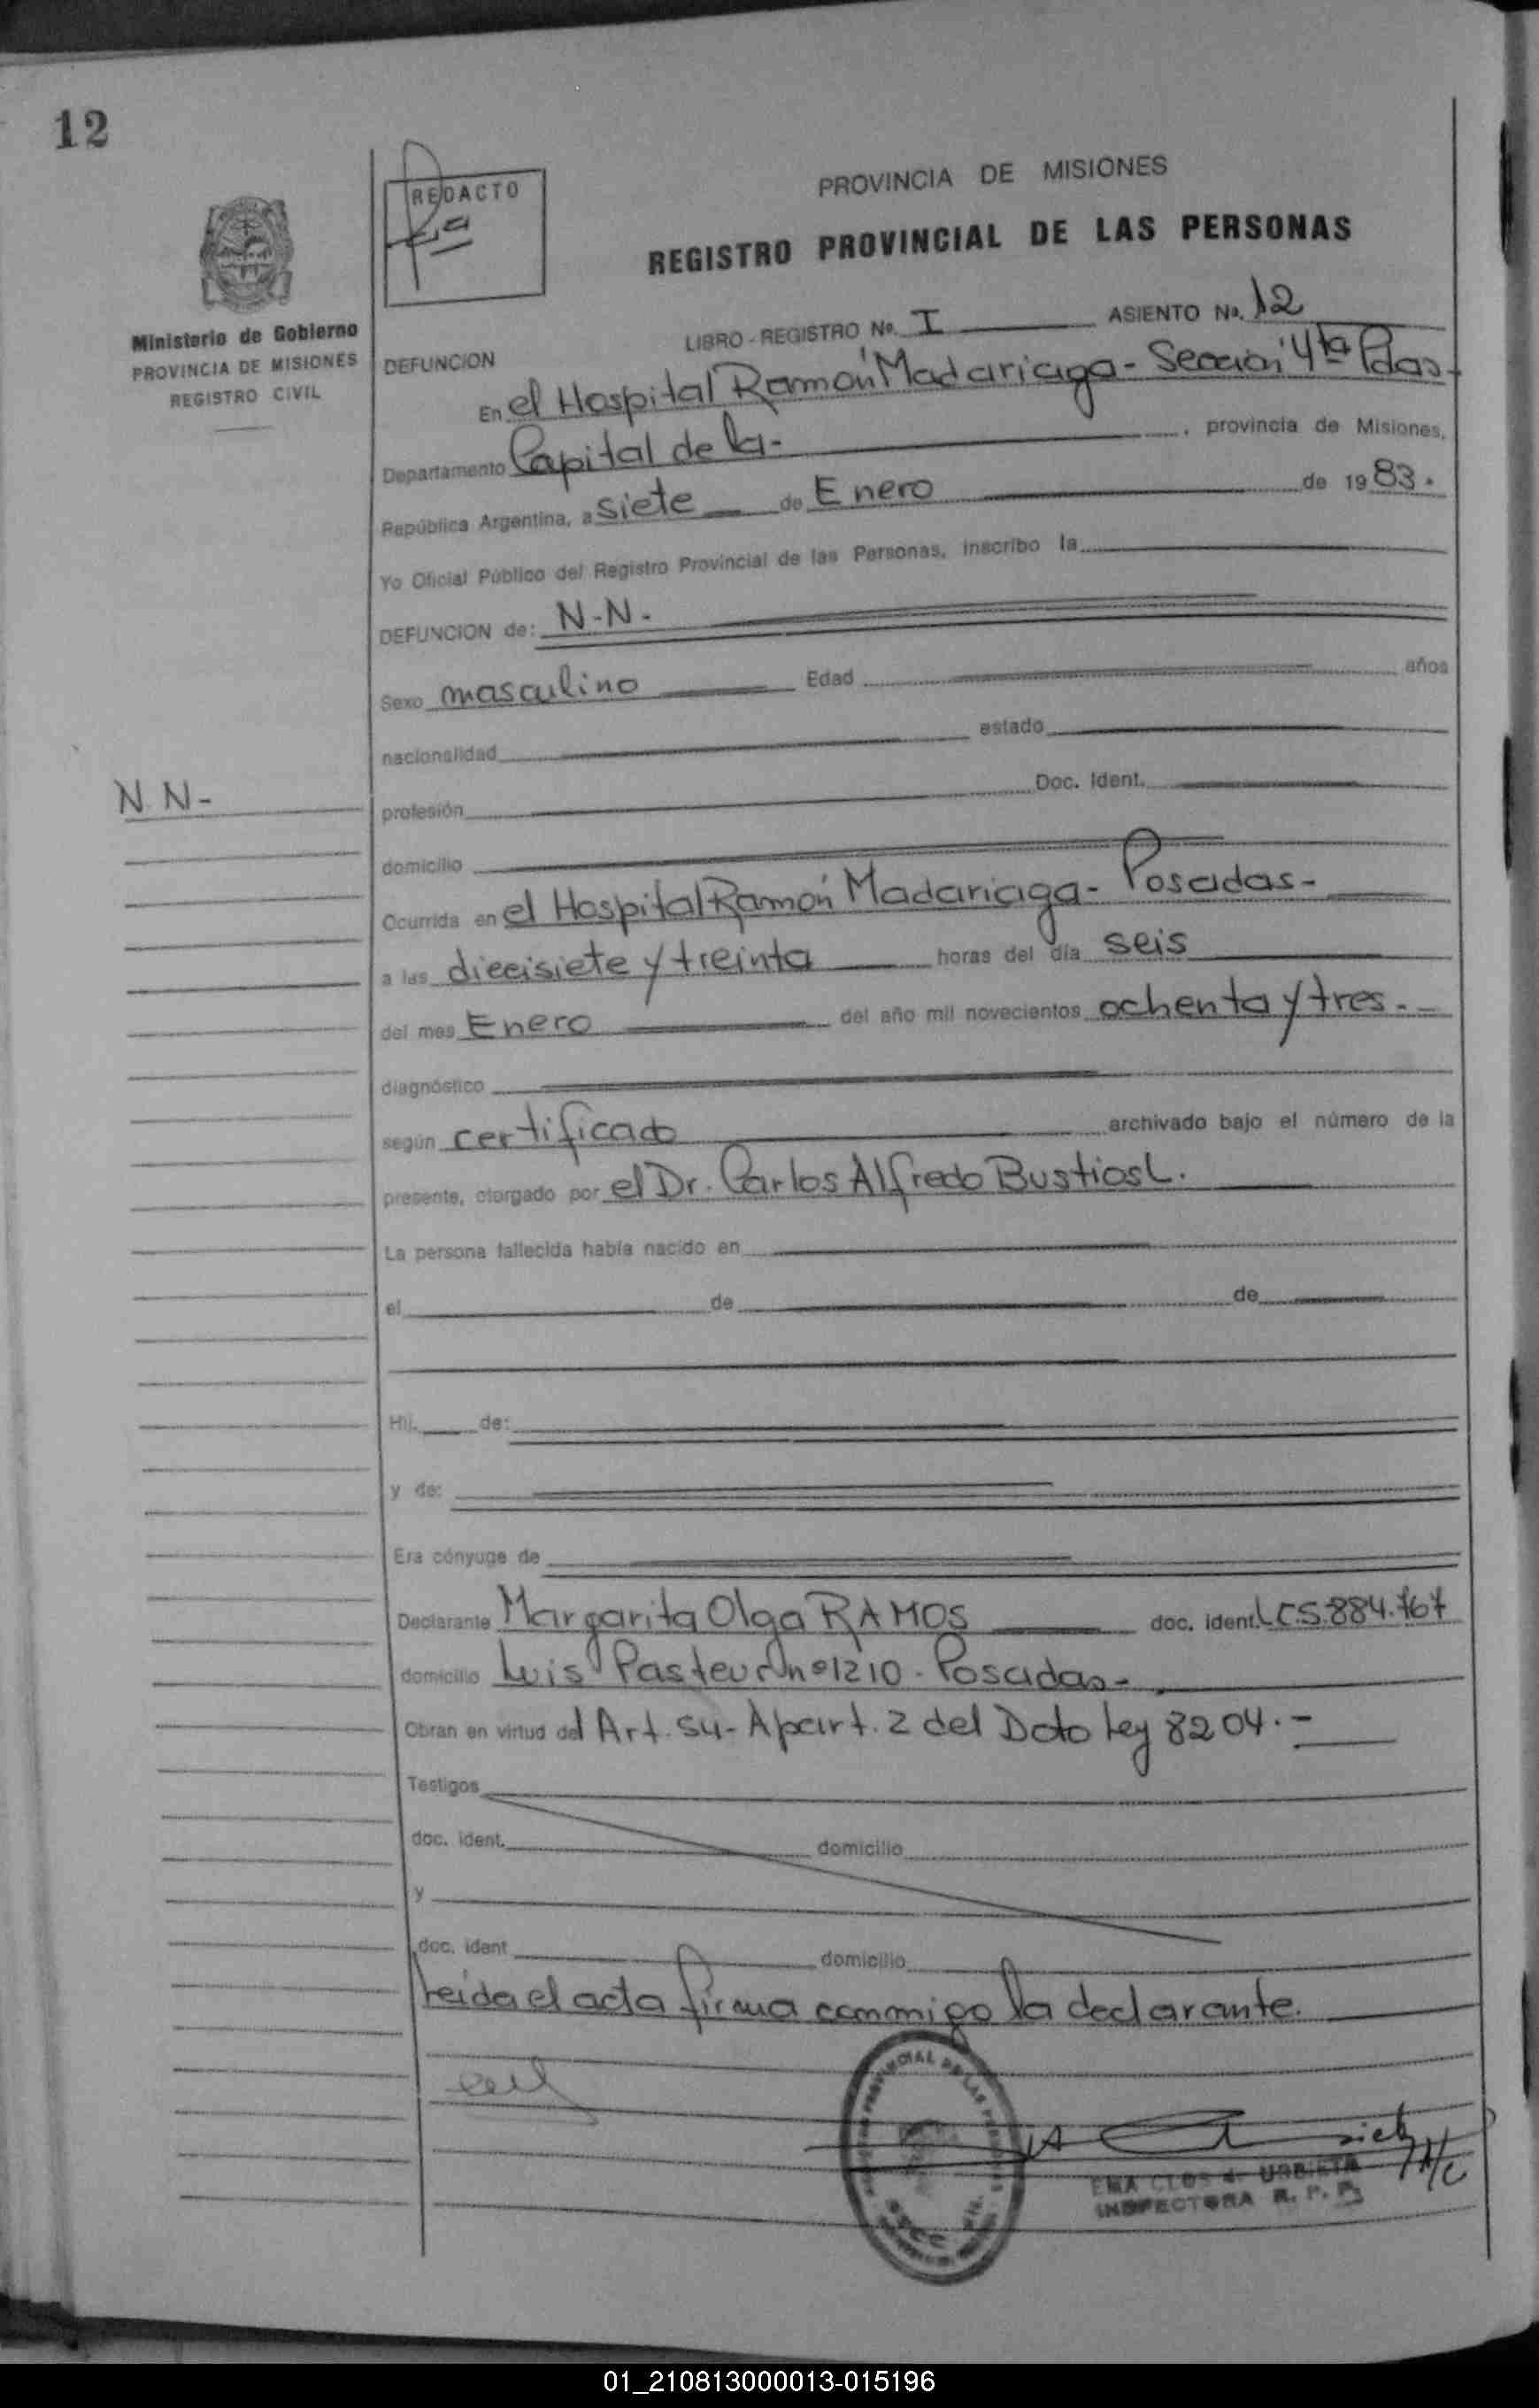 12
REDACTO
PROVINCIA DE MISIONES
REGISTRO PROVINCIAL DE LAS PERSONAS
Ministerio de Gobierno
PROVINCIA DE MISIONES
REGISTRO CIVIL
LIBRO - REGISTRO No. I ASIENTO No. 12
DEFUNCION
En el Hospital Ramón Madariaga - Sección 4ta Pdas.
Departamento Capital de la - , provincia de Misiones,
República Argentina, a siete de Enero de 1983.
Yo Oficial Público del Registro Provincial de las Personas, inscribo la
DEFUNCION de: N.N.
Sexo masculino Edad años
nacionalidad estado
N N -
profesión Doc. Ident.
domicilio
Ocurrida en el Hospital Ramón Madariaga - Posadas -
a las diecisiete y treinta horas del día seis
del mes Enero del año mil novecientos ochenta y tres. -
diagnóstico
según certificado archivado bajo el número de la
presente, otorgado por el Dr. Carlos Alfredo Bustios L.
La persona fallecida había nacido en
el de de
Hij. de:
y de:
Era cónyuge de
Declarante Margarita Olga RAMOS doc. ident. LC 5.884.767
domicilio Luis Pasteur nº 1210 - Posadas -
Obran en virtud del Art. 54 - Apart. 2 del Dcto Ley 8204. -
Testigos
doc. ident. domicilio
y
doc. ident domicilio
Leida el acta firma conmigo la declarante.
INSPECTORA R. P. P.
01_210813000013-015196